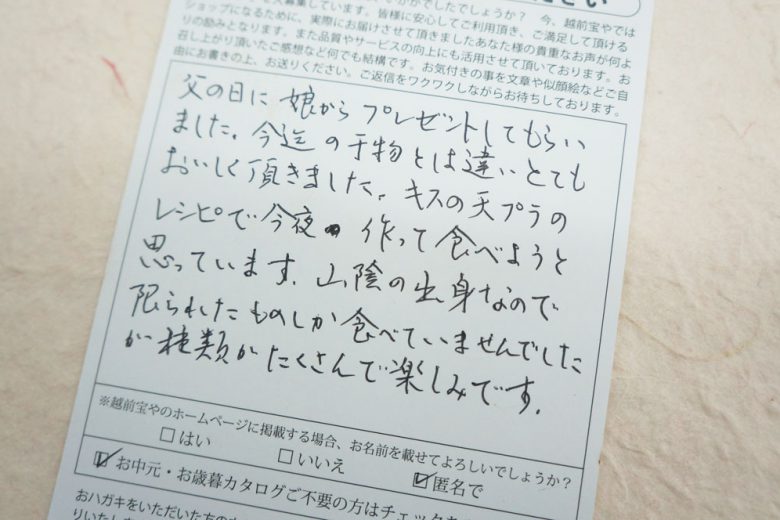 ください
いかがでしたでしょうか? 今、越前宝やでは
募集しています。皆様に安心してご利用頂き、ご満足して頂ける
ショップになるために、実際にお届けさせて頂きましたあなた様の貴重なお声が何よ
りの励みとなります。また品質やサービスの向上にも活用させて頂いております。お
召し上がり頂いたご感想など何でも結構です。お気付きの事を文章や似顔絵などご自
由にお書きの上、お送りください。ご返信をワクワクしながらお待ちしております。
父の日に 娘から プレゼントしてもらい
ました。今迄の干物とは違いとても
おいしく頂きました。キスの天プラの
レシピで今夜 作って食べようと
思っています。山陰の出身なので
限られたものしか食べていませんでした
が種類がたくさんで楽しみです。
※越前宝やのホームページに掲載する場合、お名前を載せてよろしいでしょうか?
□はい □いいえ ☑匿名で
☑お中元・お歳暮カタログご不要の方はチェックを
おハガキをいただいた方の